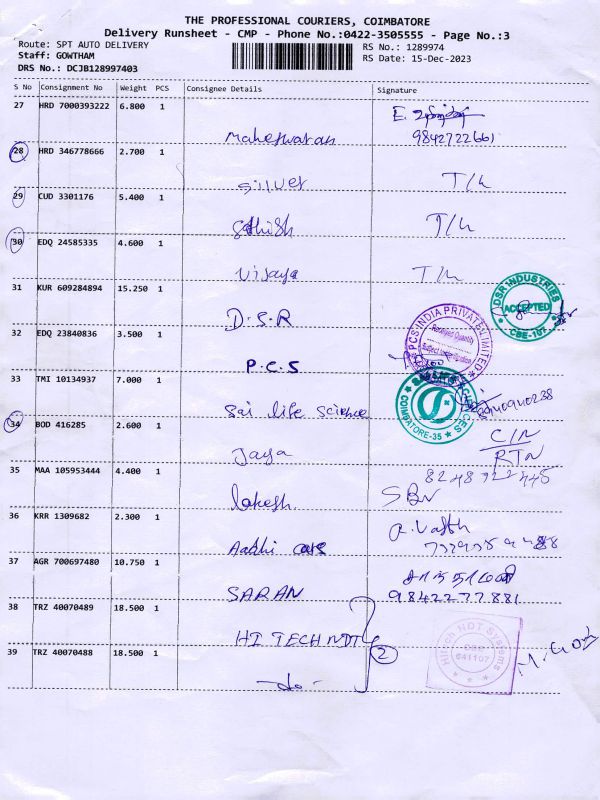 THE PROFESSIONAL COURIERS, COIMBATORE
Delivery Runsheet - CMP - Phone No.:0422-3505555 - Page No.:3
Route: SPT AUTO DELIVERY
Staff: GOWTHAM
DRS No.: DCJB128997403
RS No.: 1289974
RS Date: 15-Dec-2023
S No Consignment No Weight PCS Consignee Details Signature
27 HRD 7000393222 6.800 1
Maheswaran 9842722661
28 HRD 346778666 2.700 1
Silver T/L
29 CUD 3301176 5.400 1
Sathish T/L
30 EDQ 24585335 4.600 1
Vijaya T/L
31 KUR 609284894 15.250 1
D.S.R
DSR INDUSTRIES
ACCEPTED
CBE-107
32 EDQ 23840836 3.500 1
P.C.S
PCS INDIA PRIVATE LIMITED
33 TMI 10134937 7.000 1
Sai life Science
COIMBATORE-35
34 BOD 416285 2.600 1
Jaya
RTN
35 MAA 105953444 4.400 1
36 KRR 1309682 2.300 1
Aadhi care
37 AGR 700697480 10.750 1
SARAN 9842277881
38 TRZ 40070489 18.500 1
HI TECH NDT
2
Hitech NDT Systems
641107
39 TRZ 40070488 18.500 1
-do-